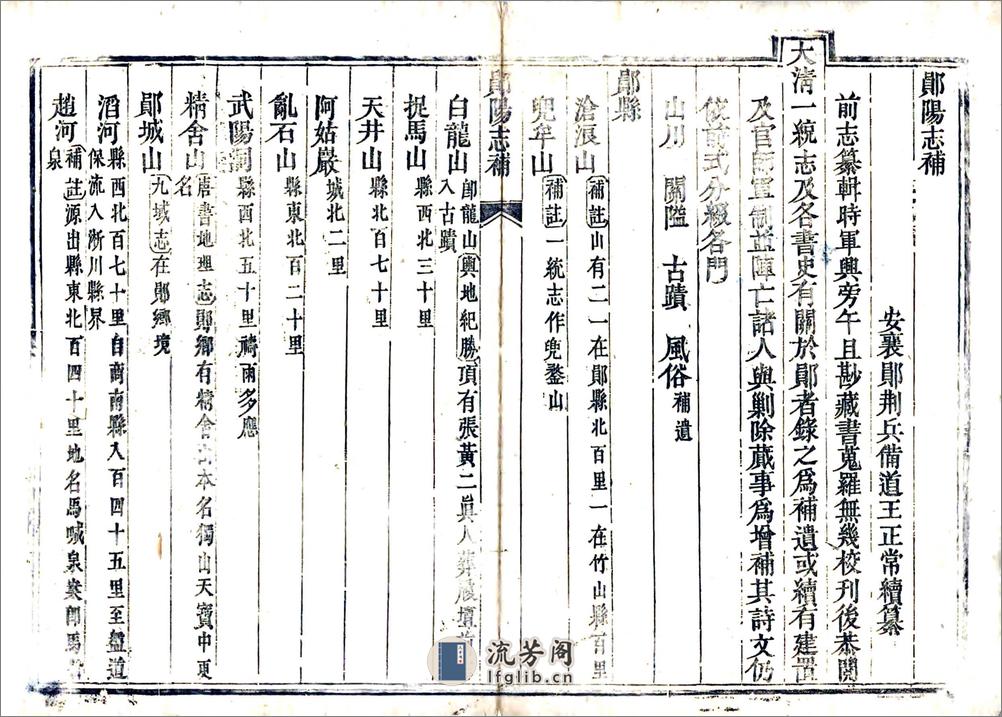 鄖陽志補
安襄鄖荆兵備道王正常續纂
前志纂輯時軍興旁午且尠藏書蒐羅無幾校刊後恭閱
大淸一統志及各書史有關於鄖者錄之爲補遺或續有建置
及官師宣制並陣亡諸人與剿除蕆事爲增補其詩文仍
依前式分綴各門
山川 關隘 古蹟 風俗 補遺
鄖縣
滄浪山 補註 山有二一在鄖縣北百里一在竹山縣百里
兜牟山 補註 一統志作兜鍪山
鄖陽志補
白龍山 卽龍山輿地紀勝頂有張黃二眞人
入古蹟
捉馬山 縣西北三十里
天井山 縣北百七十里
阿姑巖 城北二里
亂石山 縣東北百二十里
武陽洞 縣西北五十里禱雨多應
精舍山 唐書地理志鄖鄉有精舍山本名獨山天寶中更
名
鄖城山 九域志在鄖鄉境
滔河 縣西北百七十里自商南縣入百四十五里至盤道
保流入淅川縣界
趙河 補註源出縣東北百四十里地名馬喊泉案卽馬
泉
流芳阁
lfglib.cn